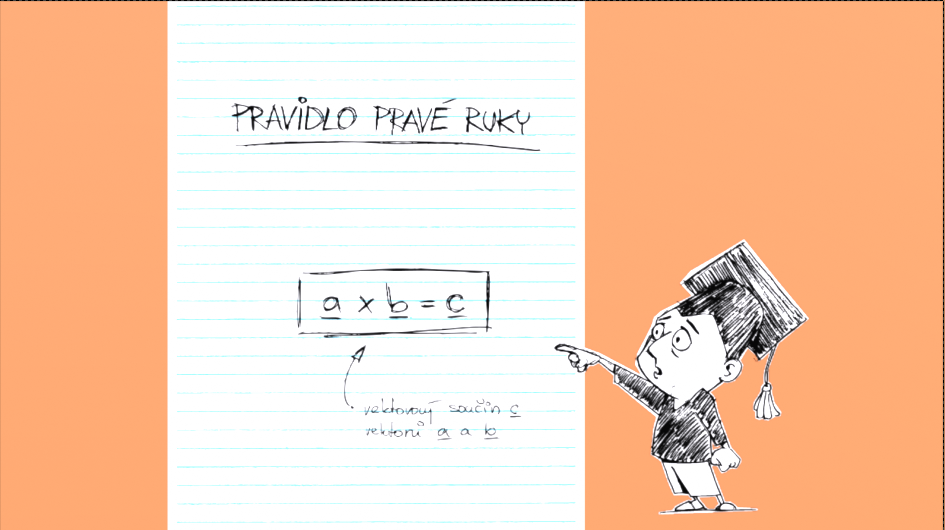 PRAVIDLO PRAVÉ RUKY
a x b = c
vektorový součin c
vektorů a a b